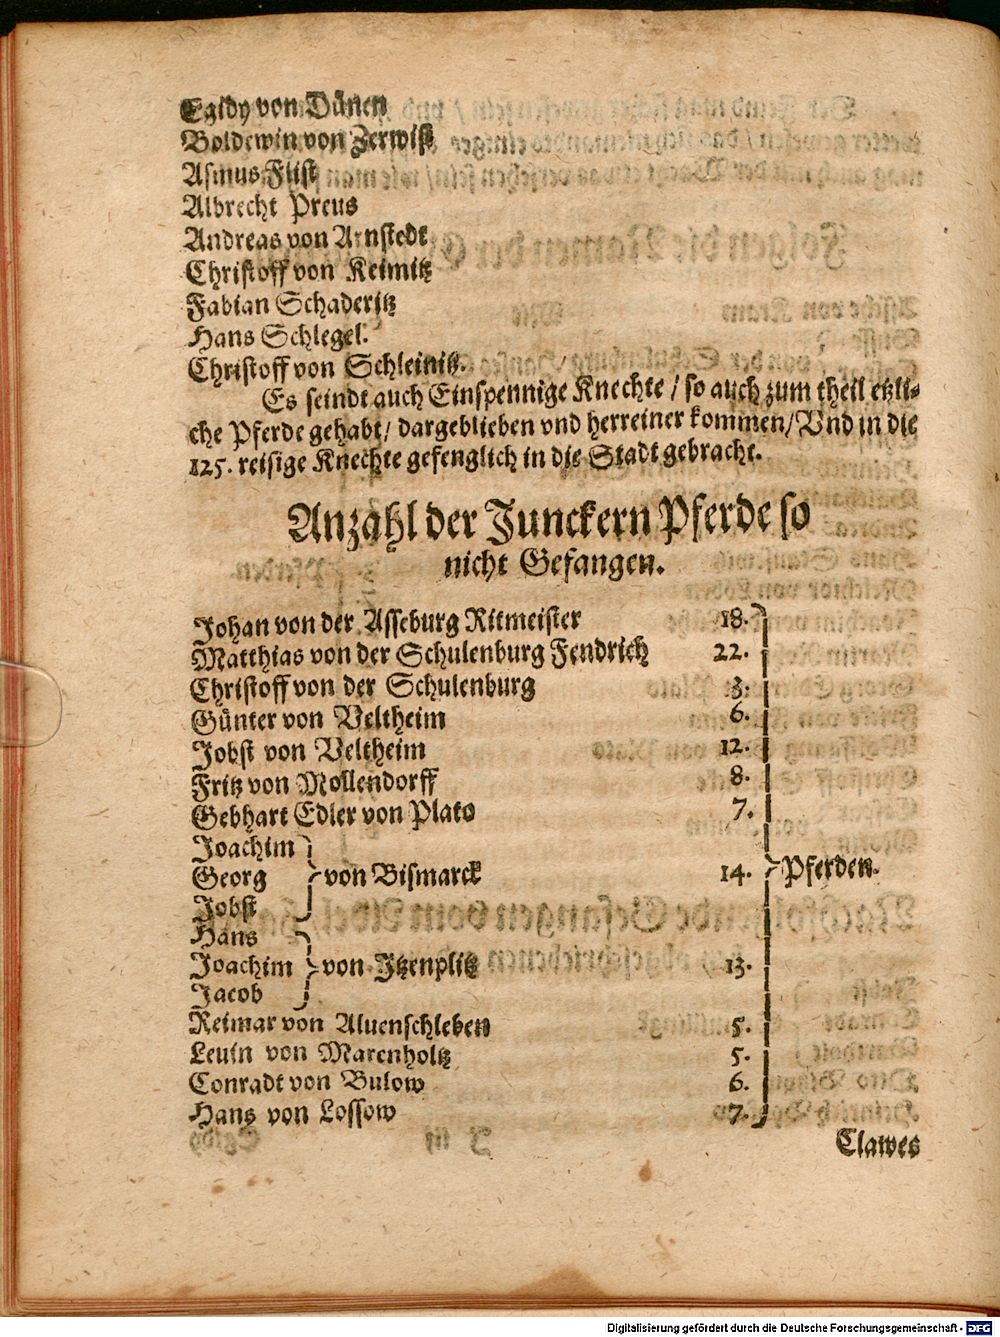 Egidy von Dänen
Boldewin von Zerwist
Asmus Flist
Albrecht Preus
Andreas von Arnstedt
Christoff von Keimitz
Fabian Schaderitz
Hans Schlegel.
Christoff von Schleinitz.
Es seindt auch Einspennige Knechte / so auch zum theil etzli-
che Pferde gehabt / dargeblieben vnd herreiner kommen / Vnd in die
125. reisige Knechte gefenglich in die Stadt gebracht.
Anzahl der Junckern Pferde so
nicht Gefangen.
Johan von der Asseburg Ritmeister 18.
Matthias von der Schulenburg Fendrich 22.
Christoff von der Schulenburg 3.
Günter von Veltheim 6.
Jobst von Veltheim 12.
Fritz von Mollendorff 8.
Gebhart Edler von Plato 7.
Joachim
Georg von Bismarck 14. Pferden.
Jobst
Hans
Joachim von Jtzenplitz 13.
Jacob
Reimar von Aluenschleben 5.
Leuin von Marenholtz 5.
Conradt von Bulow 6.
Hans von Lossow 7.
Clawes
Digitalisierung gefördert durch die Deutsche Forschungsgemeinschaft - DFG